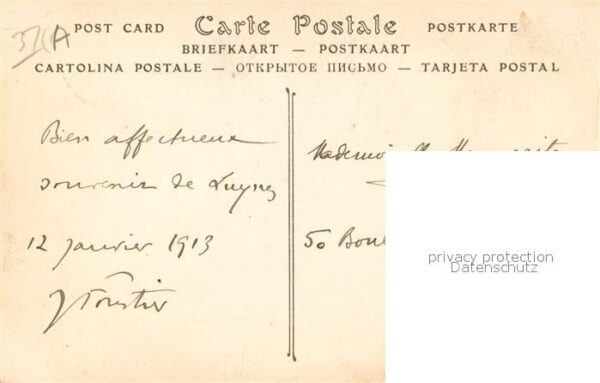 POST CARD Carte Postale POSTKARTE
BRIEFKAART — POSTKAART
CARTOLINA POSTALE — ОТКРЫТОЕ ПИСЬМО — TARJETA POSTAL
Bien affectueux
souvenir de Luynes
12 Janvier 1913
Mademoi
50 Boul
privacy protection
Datenschutz